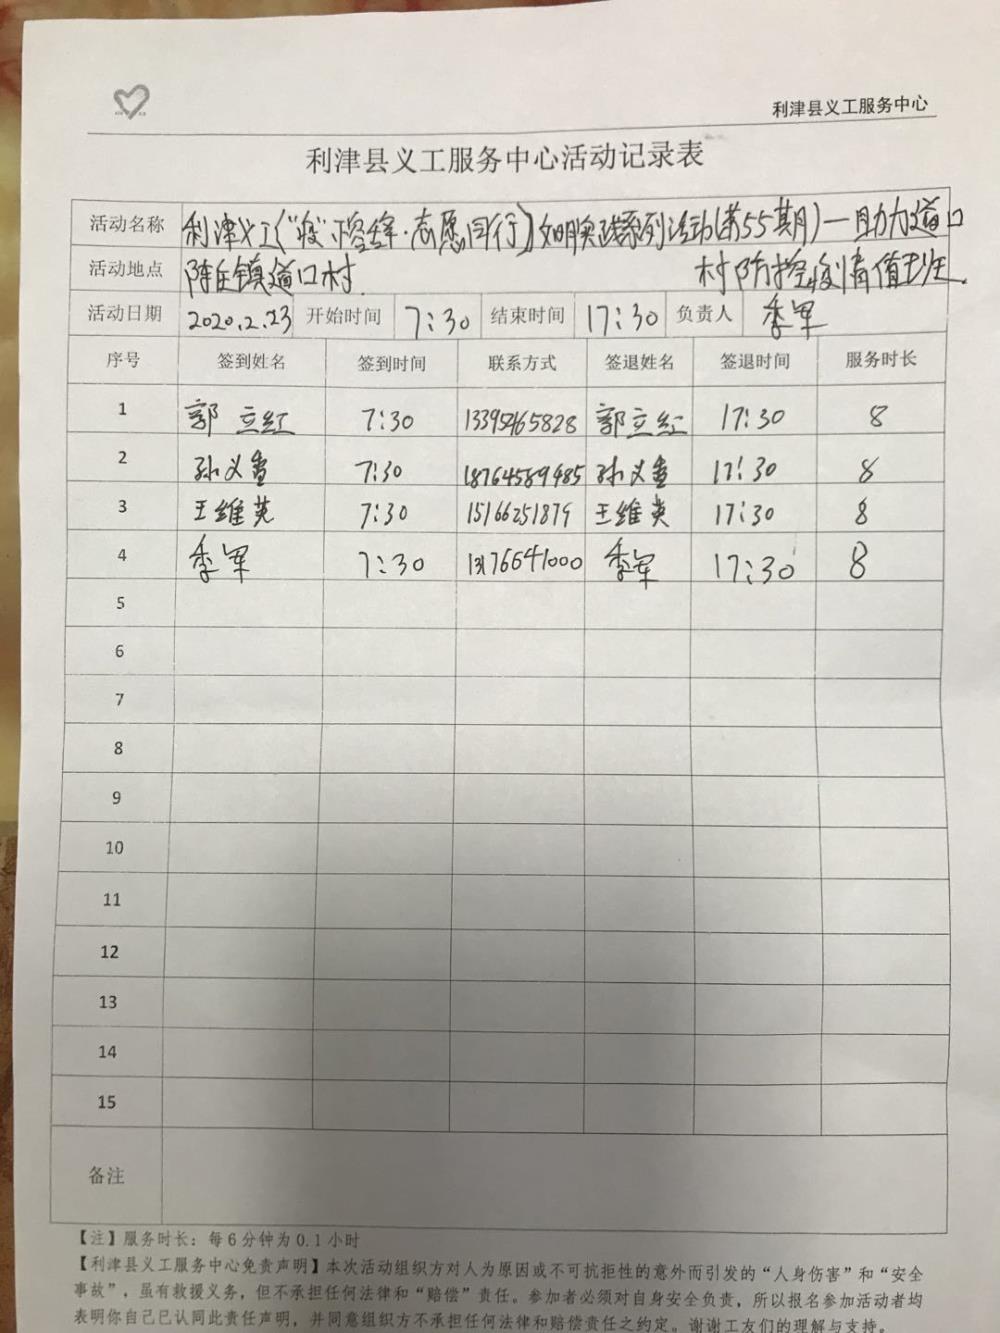 利津县义工服务中心
利津县义工服务中心活动记录表
活动名称 利津义工《“疫”不容缓·志愿同行》文明实践系列活动(第55期)—助力道口
村防控疫情值班
活动地点 陈庄镇道口村
活动日期 2020.2.23 开始时间 7:30 结束时间 17:30 负责人 季军
序号 签到姓名 签到时间 联系方式 签退姓名 签退时间 服务时长
1 郭立红 7:30 13395465828 郭立红 17:30 8
2 孙义 7:30 18764589485 孙义 17:30 8
3 王维英 7:30 15166251879 王维英 17:30 8
4 季军 7:30 13176641000 季军 17:30 8
5
6
7
8
9
10
11
12
13
14
15
备注
【注】服务时长：每6分钟为0.1小时
【利津县义工服务中心免责声明】本次活动组织方对人为原因或不可抗拒性的意外而引发的“人身伤害”和“安全
事故”，虽有救援义务，但不承担任何法律和“赔偿”责任。参加者必须对自身安全负责，所以报名参加活动者均
表明你自己已认同此责任声明，并同意组织方不承担任何法律和赔偿责任之约定。谢谢工友们的理解与支持。